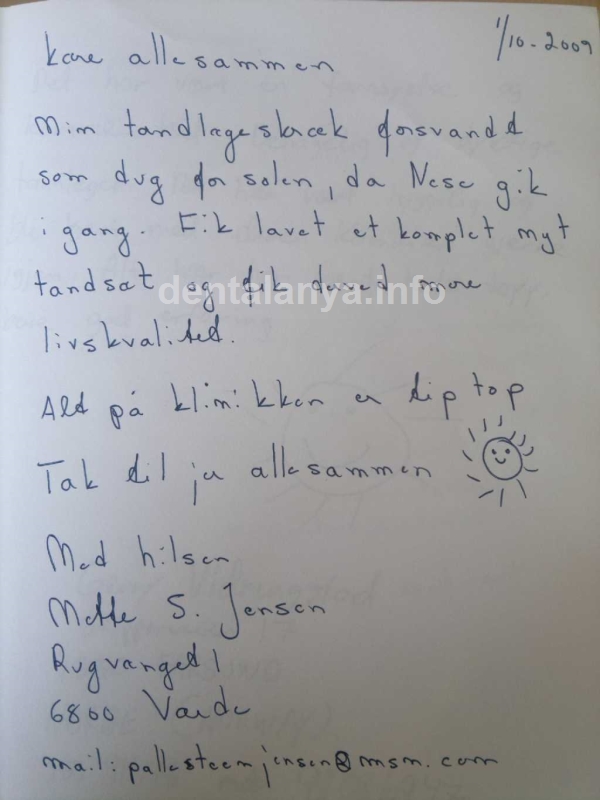 1/10-2009
Kære allesammen
Min tandlægeskræk forsvandt
som dug for solen, da Nese gik
i gang. Fik lavet et komplet nyt
tandsæt og fik derved mere
livskvalitet.
Alt på klinikken er tip top
Tak til jer allesammen
Med hilsen
Mette S. Jensen
Rugvænget 1
6800 Varde
mail: pallesteenjensen@msn.com
dentalanya.info